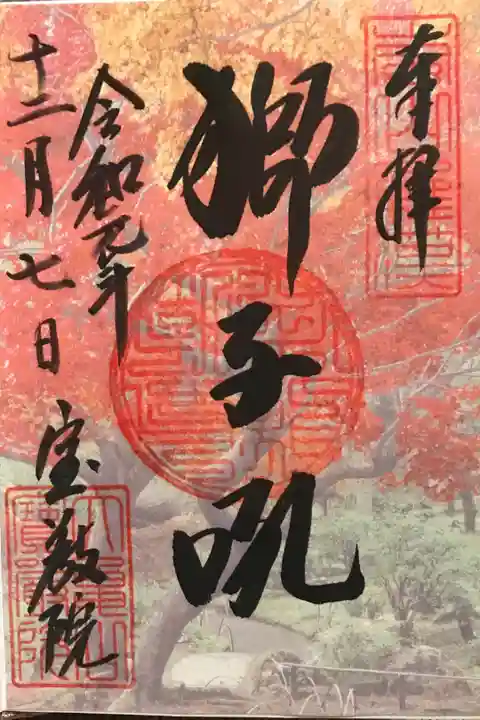 奉拝
獅子吼
令和元年
十二月七日
宝厳院